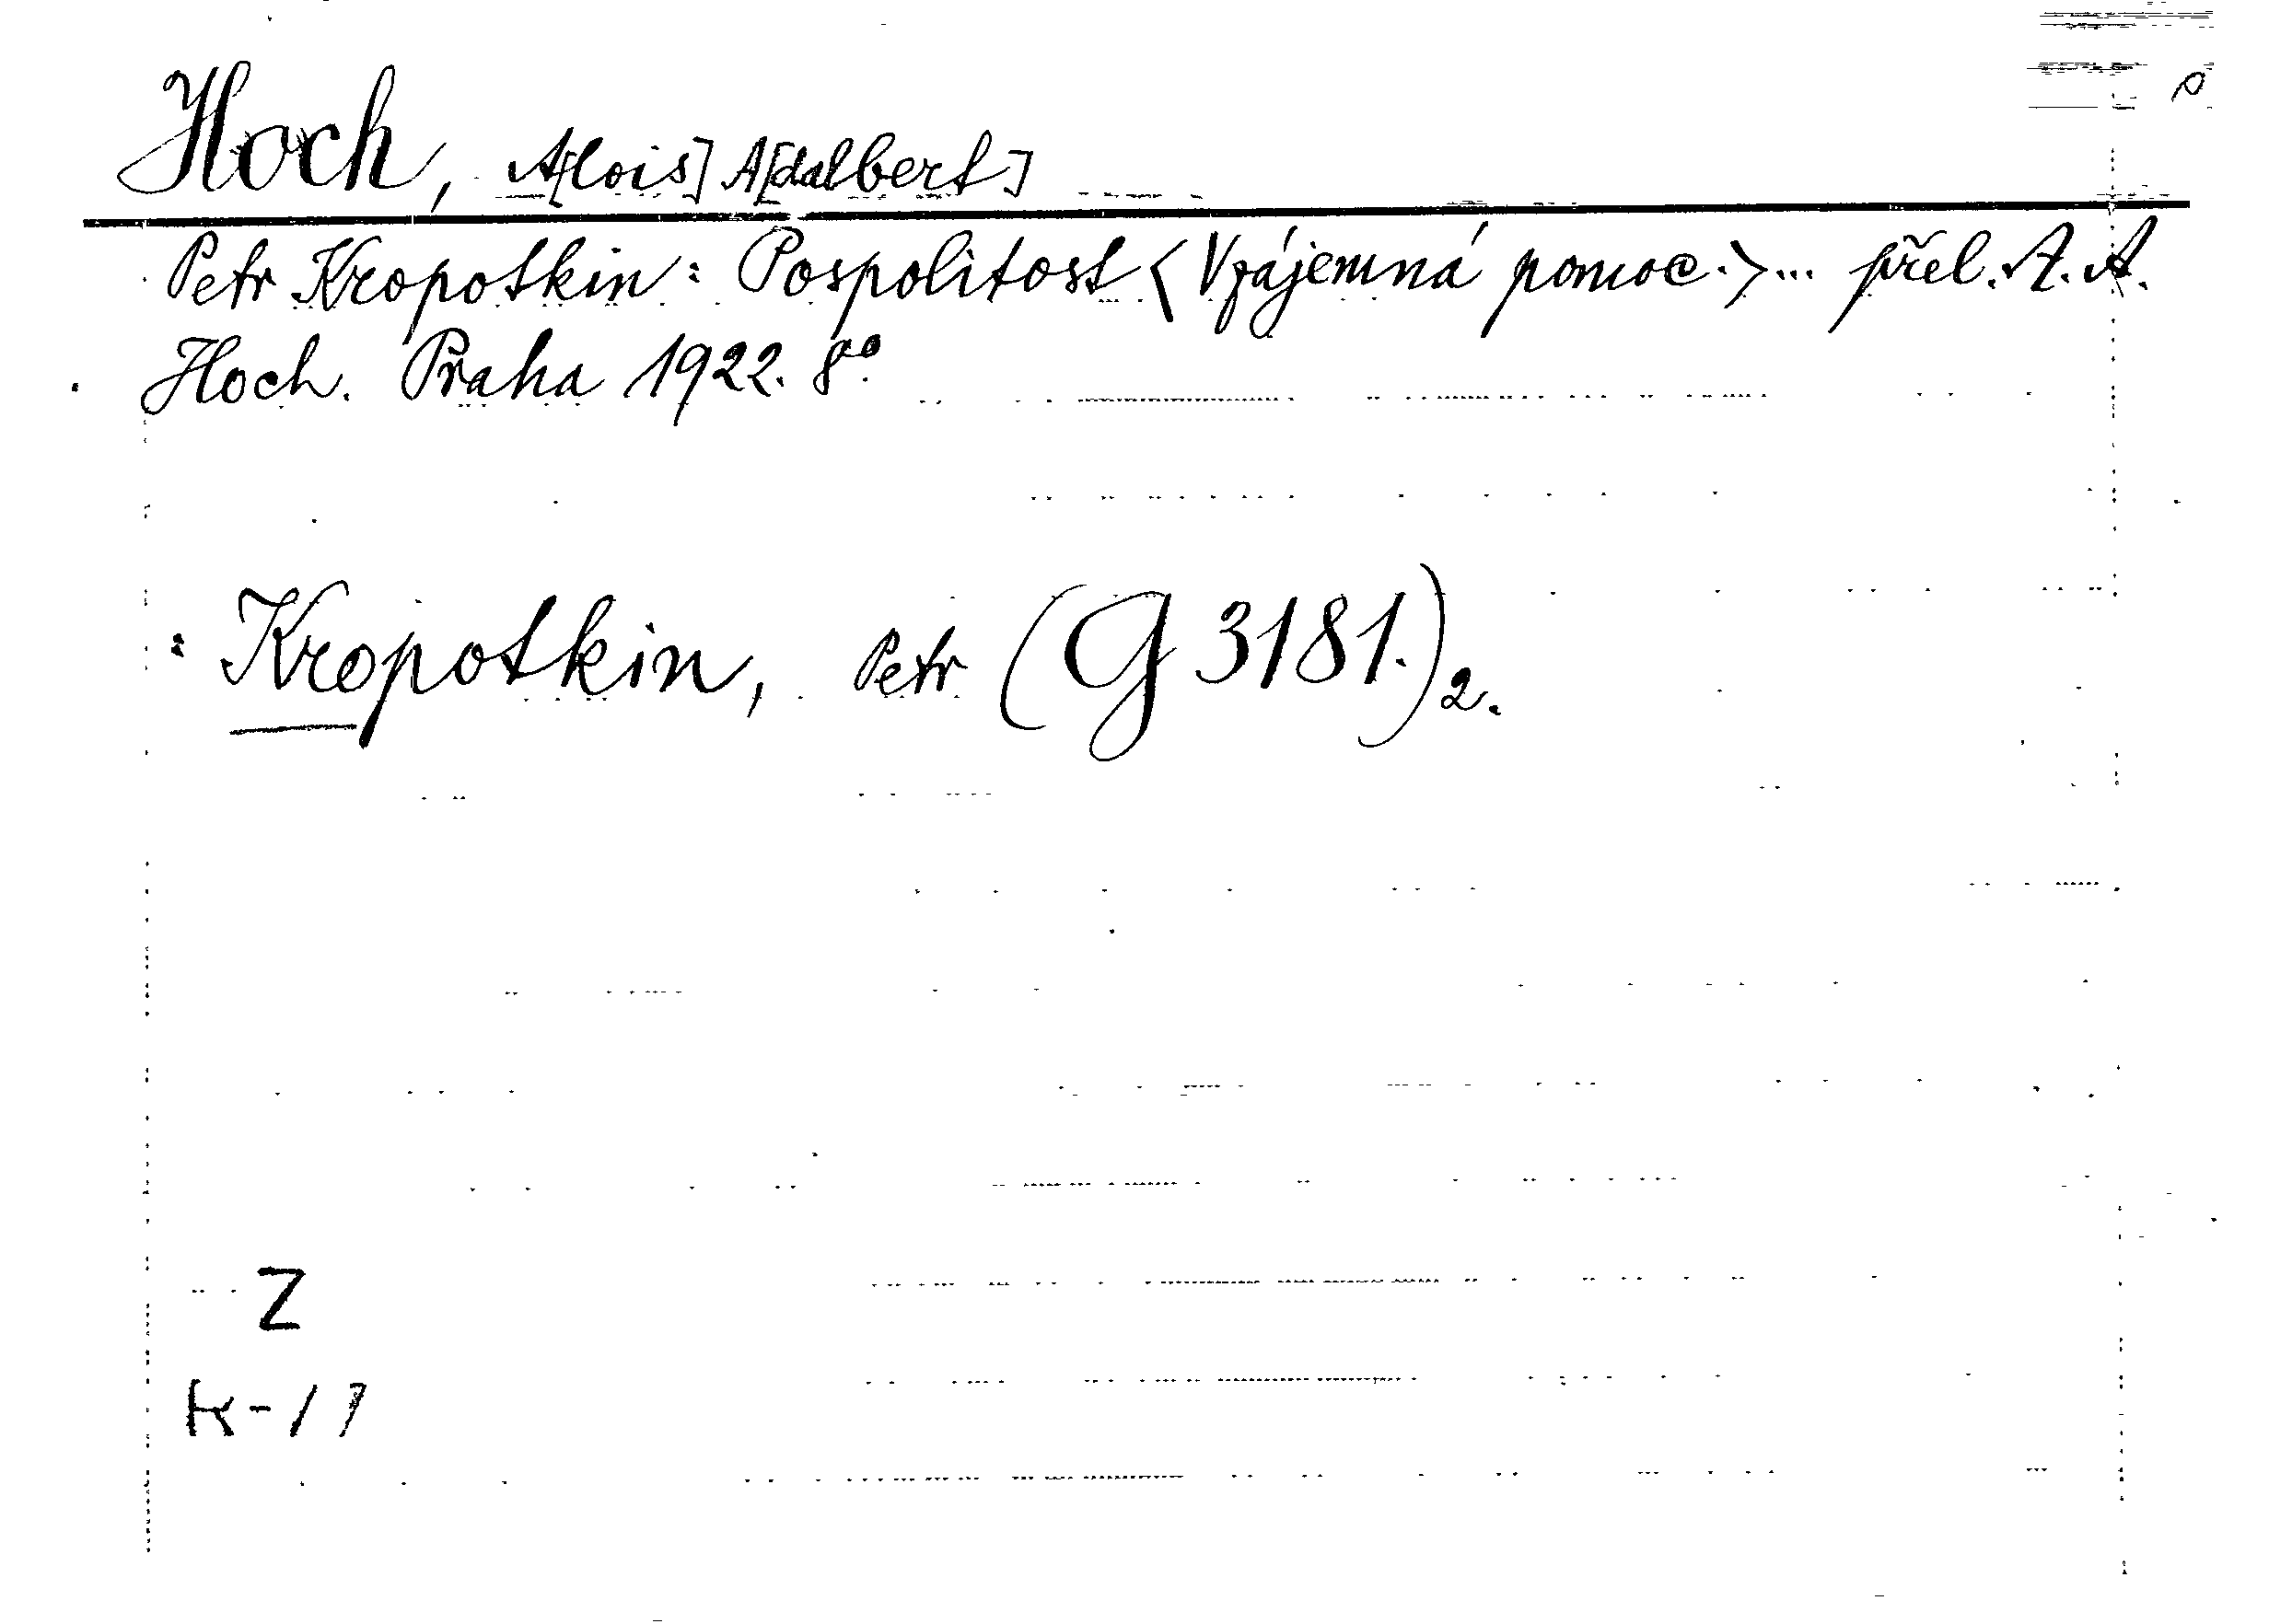 Hoch, A[lois] A[dalbert]
Petr Kropotkin: Pospolitost <Vzájemná pomoc.>... přel. A. A.
Hoch. Praha 1922. 8°.
: Kropotkin, Petr (G 3181.)2.
Z
K-17